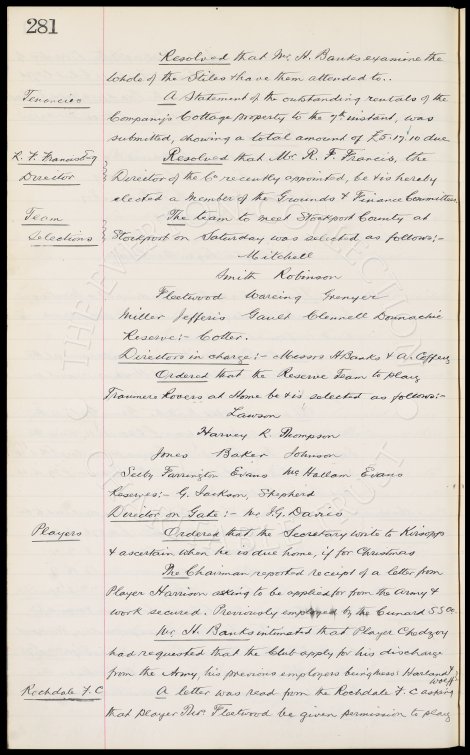 281
Resolved that Mr. H. Banks examine the
whole of the Stiles & have them attended to.
Tenancies
A Statement of the outstanding rentals of the
Company's Cottage property to the 7th instant, was
submitted, showing a total amount of £5.17.10 due
R. F. Francis Esq
Director
Resolved that Mr. R. F. Francis, the
Director of the Co recently appointed, be & is hereby
elected a Member of the Grounds & Finance Committees.
Team
Selections
The team to meet Stockport County at
Stockport on Saturday was selected as follows:-
Mitchell
Smith Robinson
Fleetwood Wareing Grenyer
Miller Jefferis Gault Clennell Donnachie
Reserve:- Cotter.
Directors in charge:- Messrs H Banks & A. Coffey
Ordered that the Reserve Team to play
Tranmere Rovers at Home be & is selected as follows:-
Lawson
Harvey R. Thompson
Jones Baker Johnson
Selby Farrington Evans McHallam Evans
Reserves:- G. Jackson, Shepherd
Director on Gate:- Mr J.G. Davies
Players
Ordered that the Secretary write to Kirsopp
& ascertain when he is due home, if for Christmas
The Chairman reported receipt of a letter from
Player Harrison asking to be applied for from the Army &
work secured. Previously employed by the Cunard SS Co.
Mr. H. Banks intimated that Player Chedgzoy
had requested that the Club apply for his discharge
from the Army, his previous employers being Messrs Harland & Wolff
Rochdale F.C
A letter was read from the Rochdale F.C asking
that player Thos. Fleetwood be given permission to play